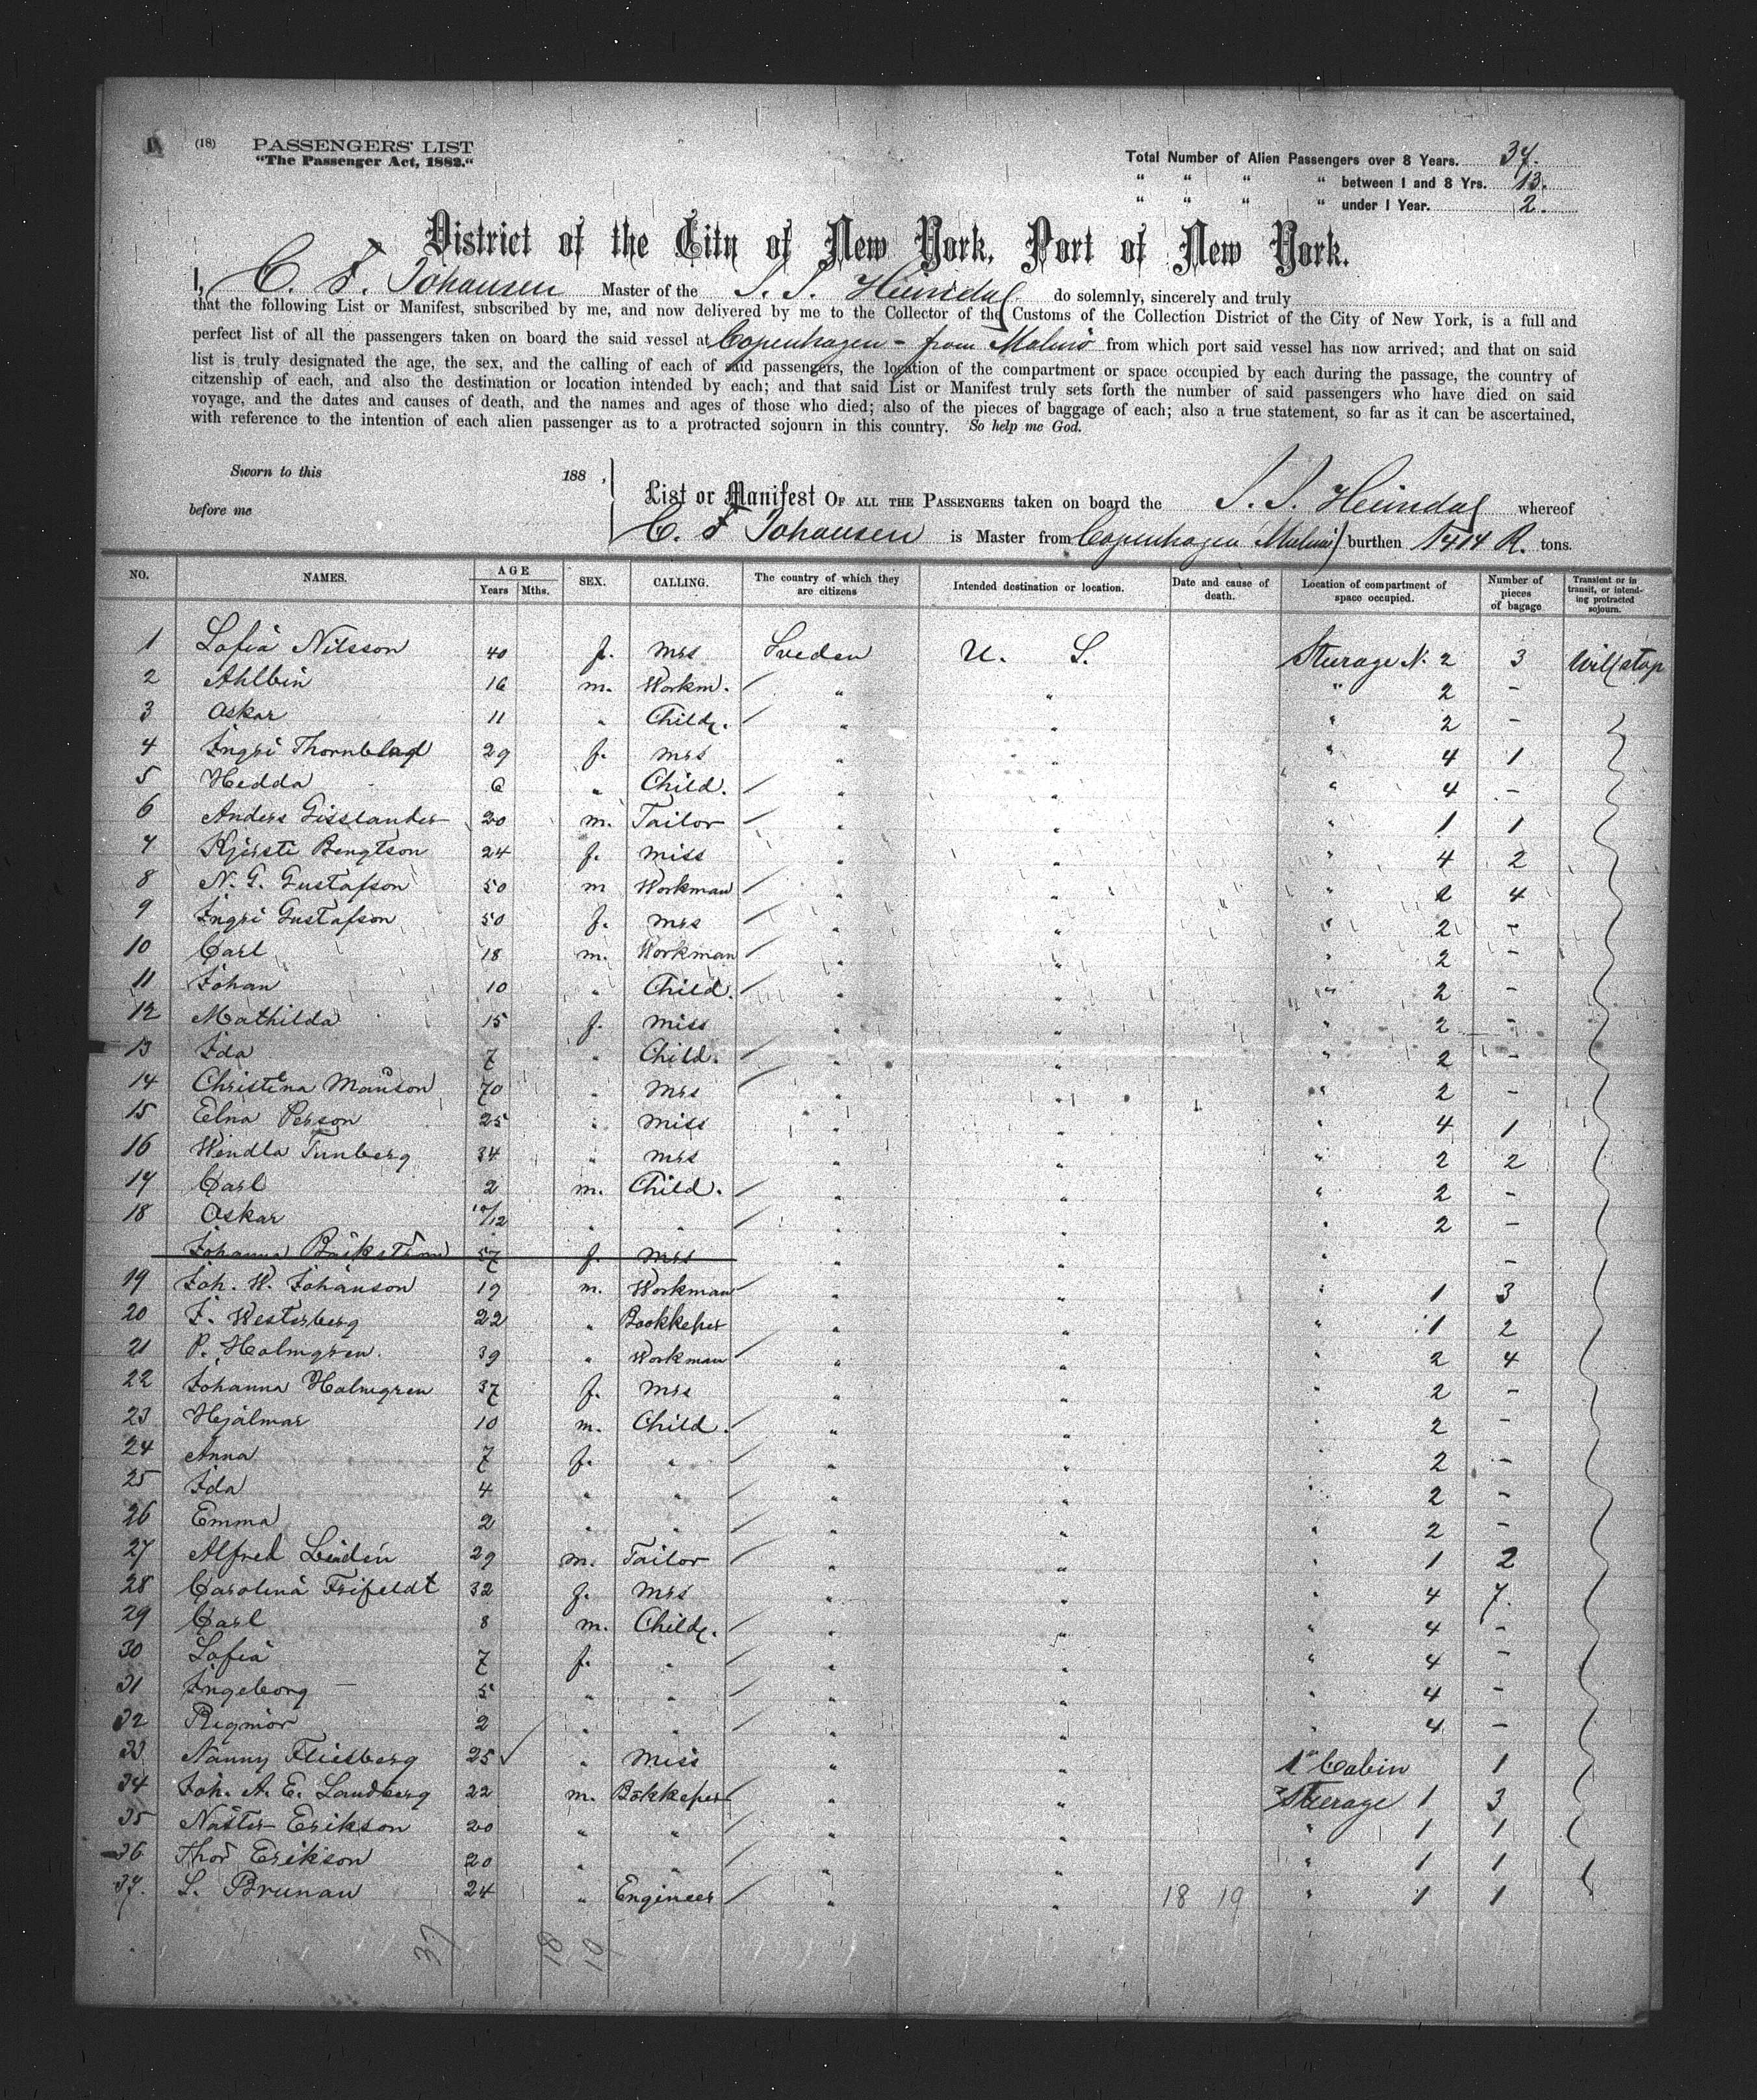 (18) PASSENGERS' LIST
"The Passenger Act, 1882."
Total Number of Alien Passengers over 8 Years. 37.
" " " " between 1 and 8 Yrs. 13.
" " " " under 1 Year. 2.
District of the City of New York, Port of New York.
I, C. F. Johansen Master of the S. S. Heimdal do solemnly, sincerely and truly
that the following List or Manifest, subscribed by me, and now delivered by me to the Collector of the Customs of the Collection District of the City of New York, is a full and
perfect list of all the passengers taken on board the said vessel at Copenhagen - from Malmö from which port said vessel has now arrived; and that on said
list is truly designated the age, the sex, and the calling of each of said passengers, the location of the compartment or space occupied by each during the passage, the country of
citzenship of each, and also the destination or location intended by each; and that said List or Manifest truly sets forth the number of said passengers who have died on said
voyage, and the dates and causes of death, and the names and ages of those who died; also of the pieces of baggage of each; also a true statement, so far as it can be ascertained,
with reference to the intention of each alien passenger as to a protracted sojourn in this country. So help me God.
Sworn to this 188 ,
before me
List or Manifest OF ALL THE PASSENGERS taken on board the S. S. Heimdal whereof
C. F. Johansen is Master from Copenhagen (Malmö) burthen 1414 R. tons.
NO. NAMES. AGE Years Mths. SEX. CALLING. The country of which they are citizens Intended destination or location. Date and cause of death. Location of compartment of space occupied. Number of pieces of bagage Transient or in transit, or intending protracted sojourn.
1 Sofia Nilsson 40 f. Mrs Sveden U. S. Steerage N. 2 3 Will stop
2 Ahlbin 16 m. Workm. " " " 2 -
3 Oskar 11 " Child. " " " 2 -
4 Ingri Thornblad 29 f. Mrs " " " 4 1
5 Hedda 6 " Child. " " " 4 -
6 Anders Gisslander 20 m. Tailor " " " 1 1
7 Kjersti Bengtson 24 f. Miss " " " 4 2
8 N. G. Gustafson 50 m Workman " " " 2 4
9 Ingri Gustafson 50 f. Mrs " " " 2 -
10 Carl 18 m. Workman " " " 2 -
11 Johan 10 " Child. " " " 2 -
12 Mathilda 15 f. Miss " " " 2 -
13 Ida 7 " Child. " " " 2 -
14 Christina Månson 70 " Mrs " " " 2 -
15 Elna Person 25 " Miss " " " 4 1
16 Wendla Tunberg 34 " Mrs " " " 2 2
17 Carl 2 m. Child. " " " 2 -
18 Oskar 10/12 " " " " " 2 -
Johanna Bäckström 57 f. Mrs " -
19 Joh. W. Johanson 19 m. Workman " " " 1 3
20 J. Westerberg 22 " Bookkeper " " " 1 2
21 P. Holmgren. 39 " Workman " " " 2 4
22 Johanna Holmgren 37 f. Mrs " " " 2 -
23 Hjalmar 10 m. Child. " " " 2 -
24 Anna 7 f. " " " " 2 -
25 Ida 4 " " " " " 2 -
26 Emma 2 " " " " " 2 -
27 Alfred Lindén 29 m. Tailor " " " 1 2
28 Carolina Frifeldt 32 f. Mrs " " " 4 7.
29 Carl 8 m. Child. " " " 4 -
30 Sofia 7 f. " " " " 4 -
31 Ingeborg 5 " " " " " 4 -
32 Rigmor 2 " " " " " 4 -
33 Nanny Flisberg 25 " Miss " " 1st Cabin 1
34 Joh. A. E. Sandberg 22 m. Bokkeper " " Steerage 1 3
35 Erikson 20 " " " " " 1 1
36 Thor Erikson 20 " " " " " 1 1
37. L. Brunau 24 " Engineer " " 18 19 " 1 1
37 18 19